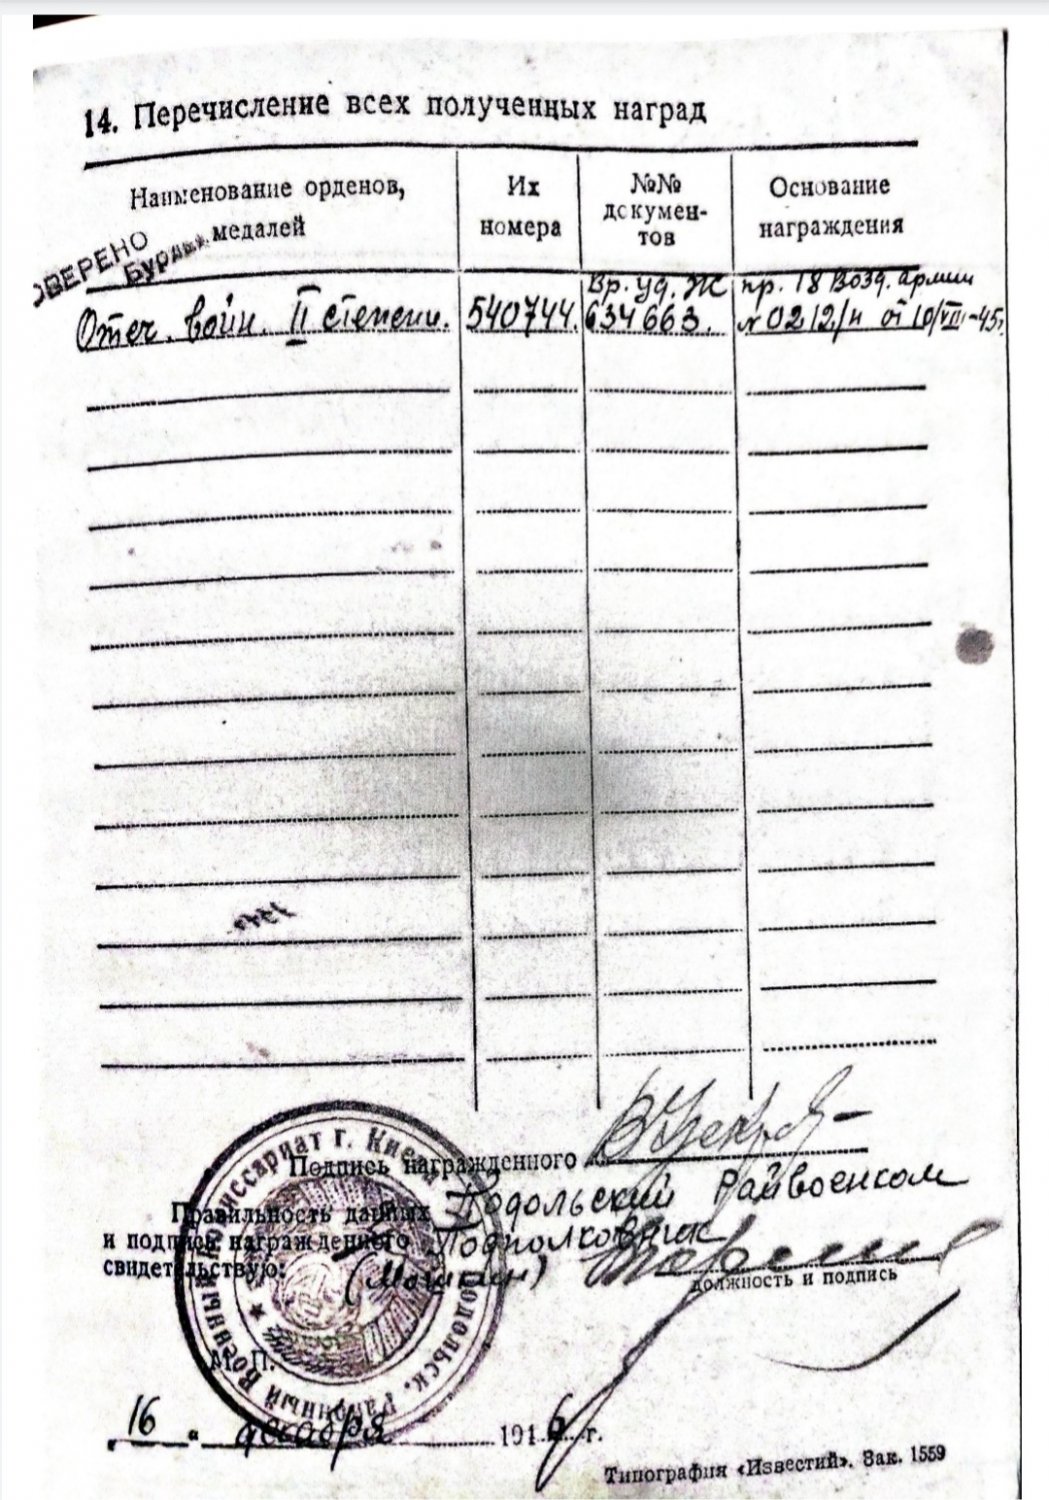 14. Перечисление всех полученных наград
Наименование орденов, медалей
Их номера
№№ докумен-
тов
Основание награждения
ОВЕРЕНО
Отеч. войн. II степени.
540744.
Вр. уд. Ж
634663.
пр. 18 Возд. армии
№ 0212/н от 10/VIII-45г.
Подпись награжденного
Правильность данных
и подпись награжденного
свидетельствую:
Подольский Райвоенком
Подполковник
(Мошкин)
должность и подпись
Районный Военный Комиссариат г. Киева Подольск.
М. П.
"16" декабря 1946 г.
Типография «Известий». Зак. 1559